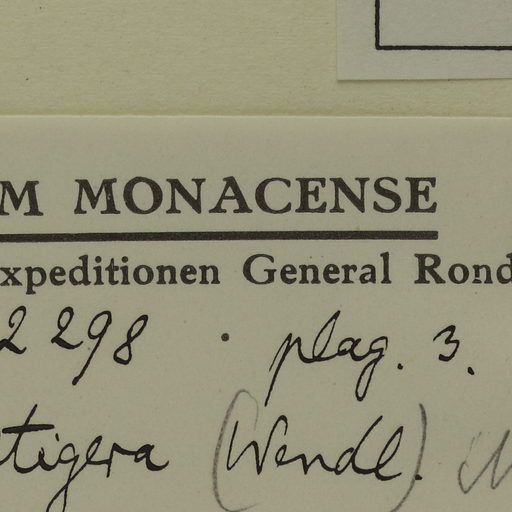 M MONACENSE
xpeditionen General Rond
2298 · plag. 3.
tigera (Wendl.)